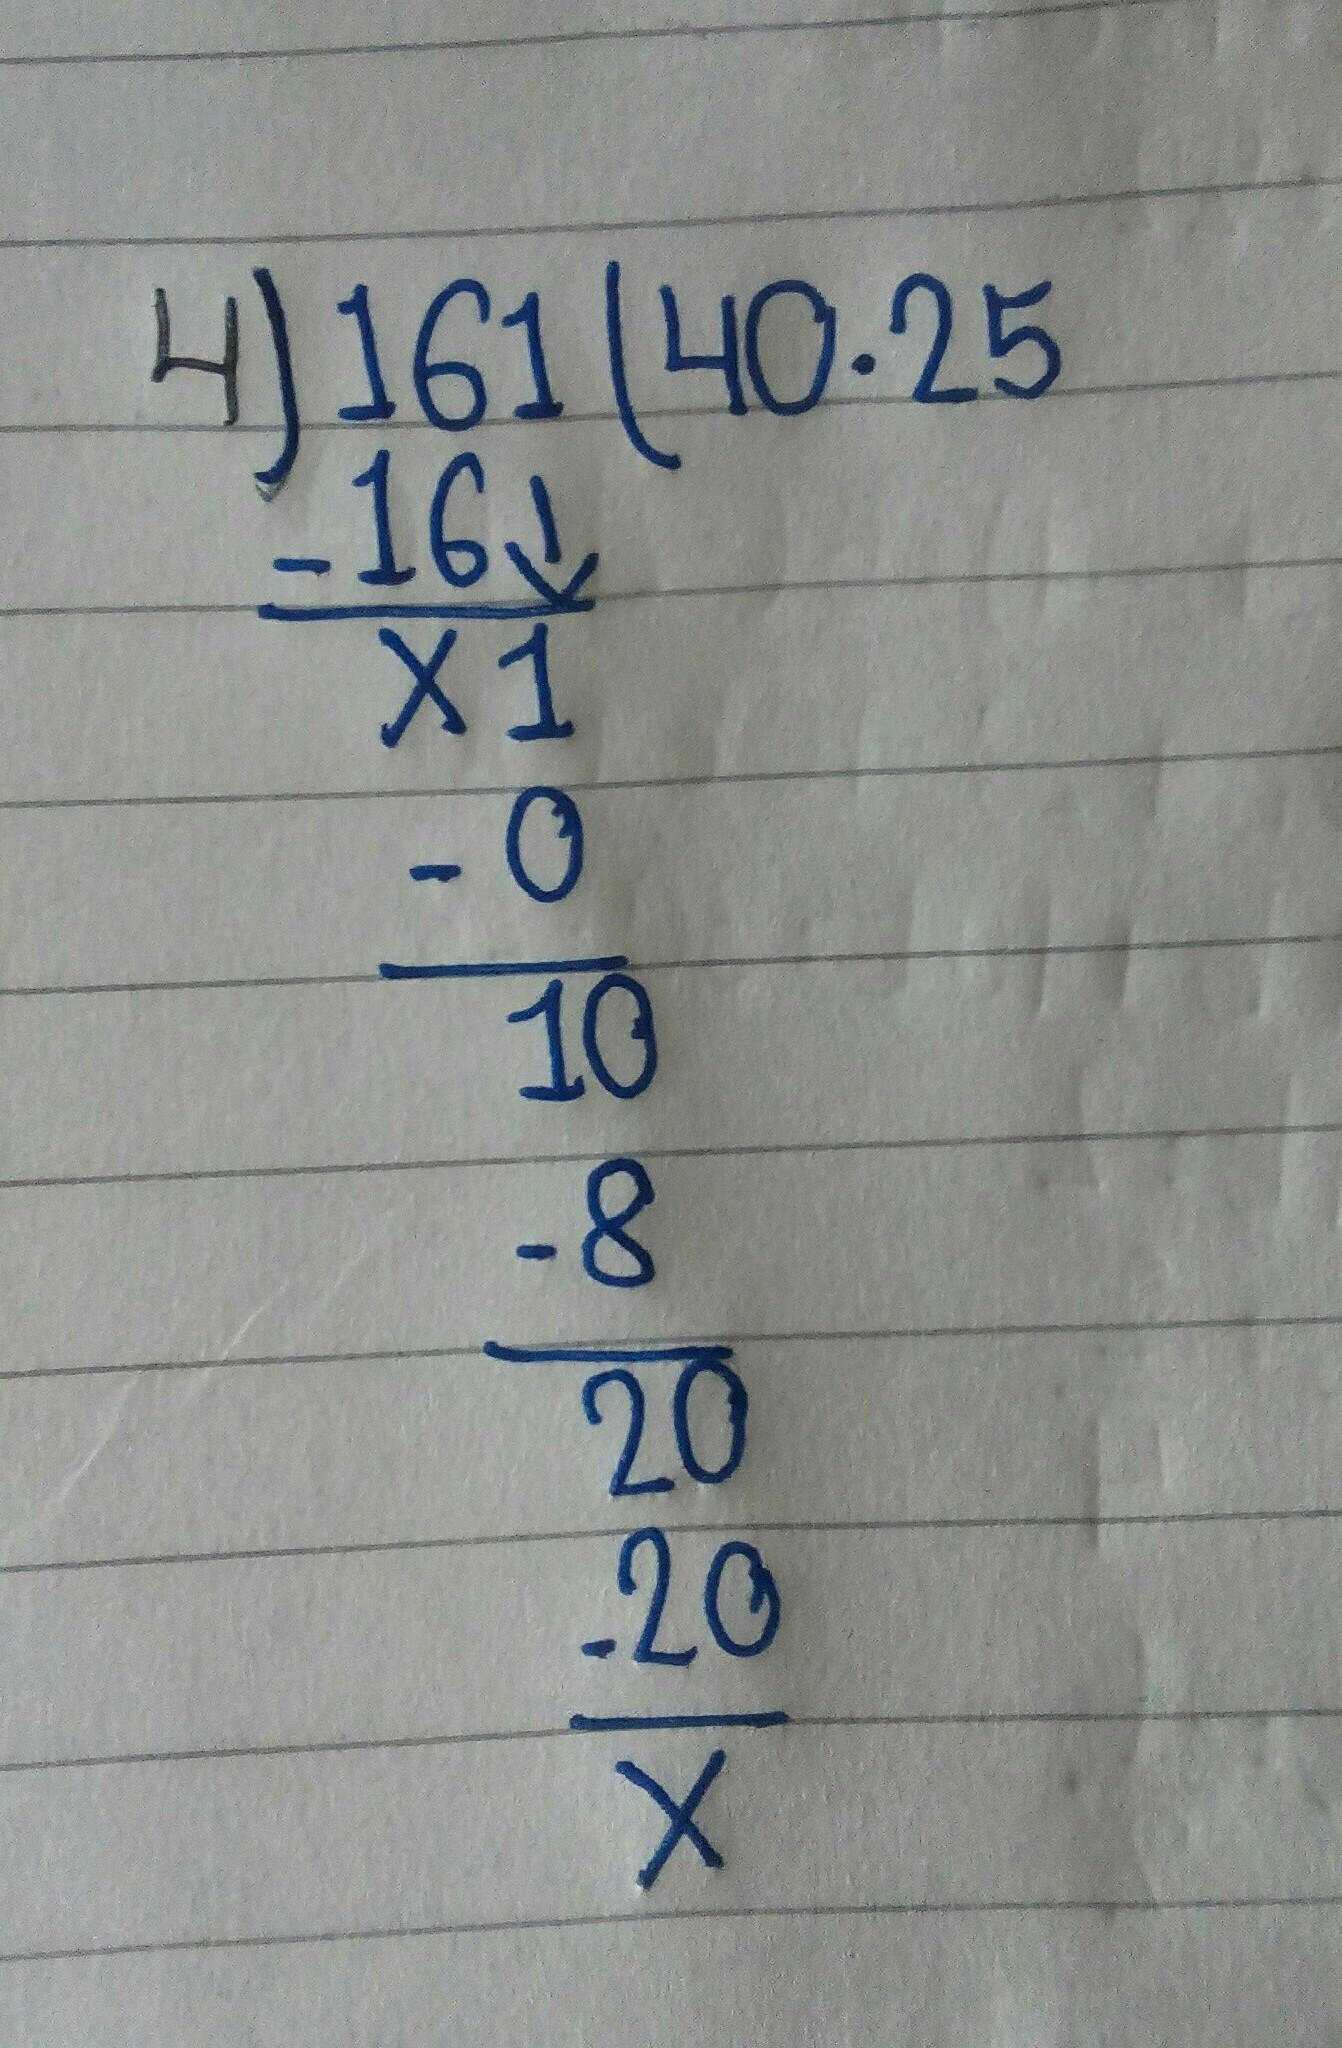 4)161(40.25
-16↓
x1
-0
10
-8
20
-20
x